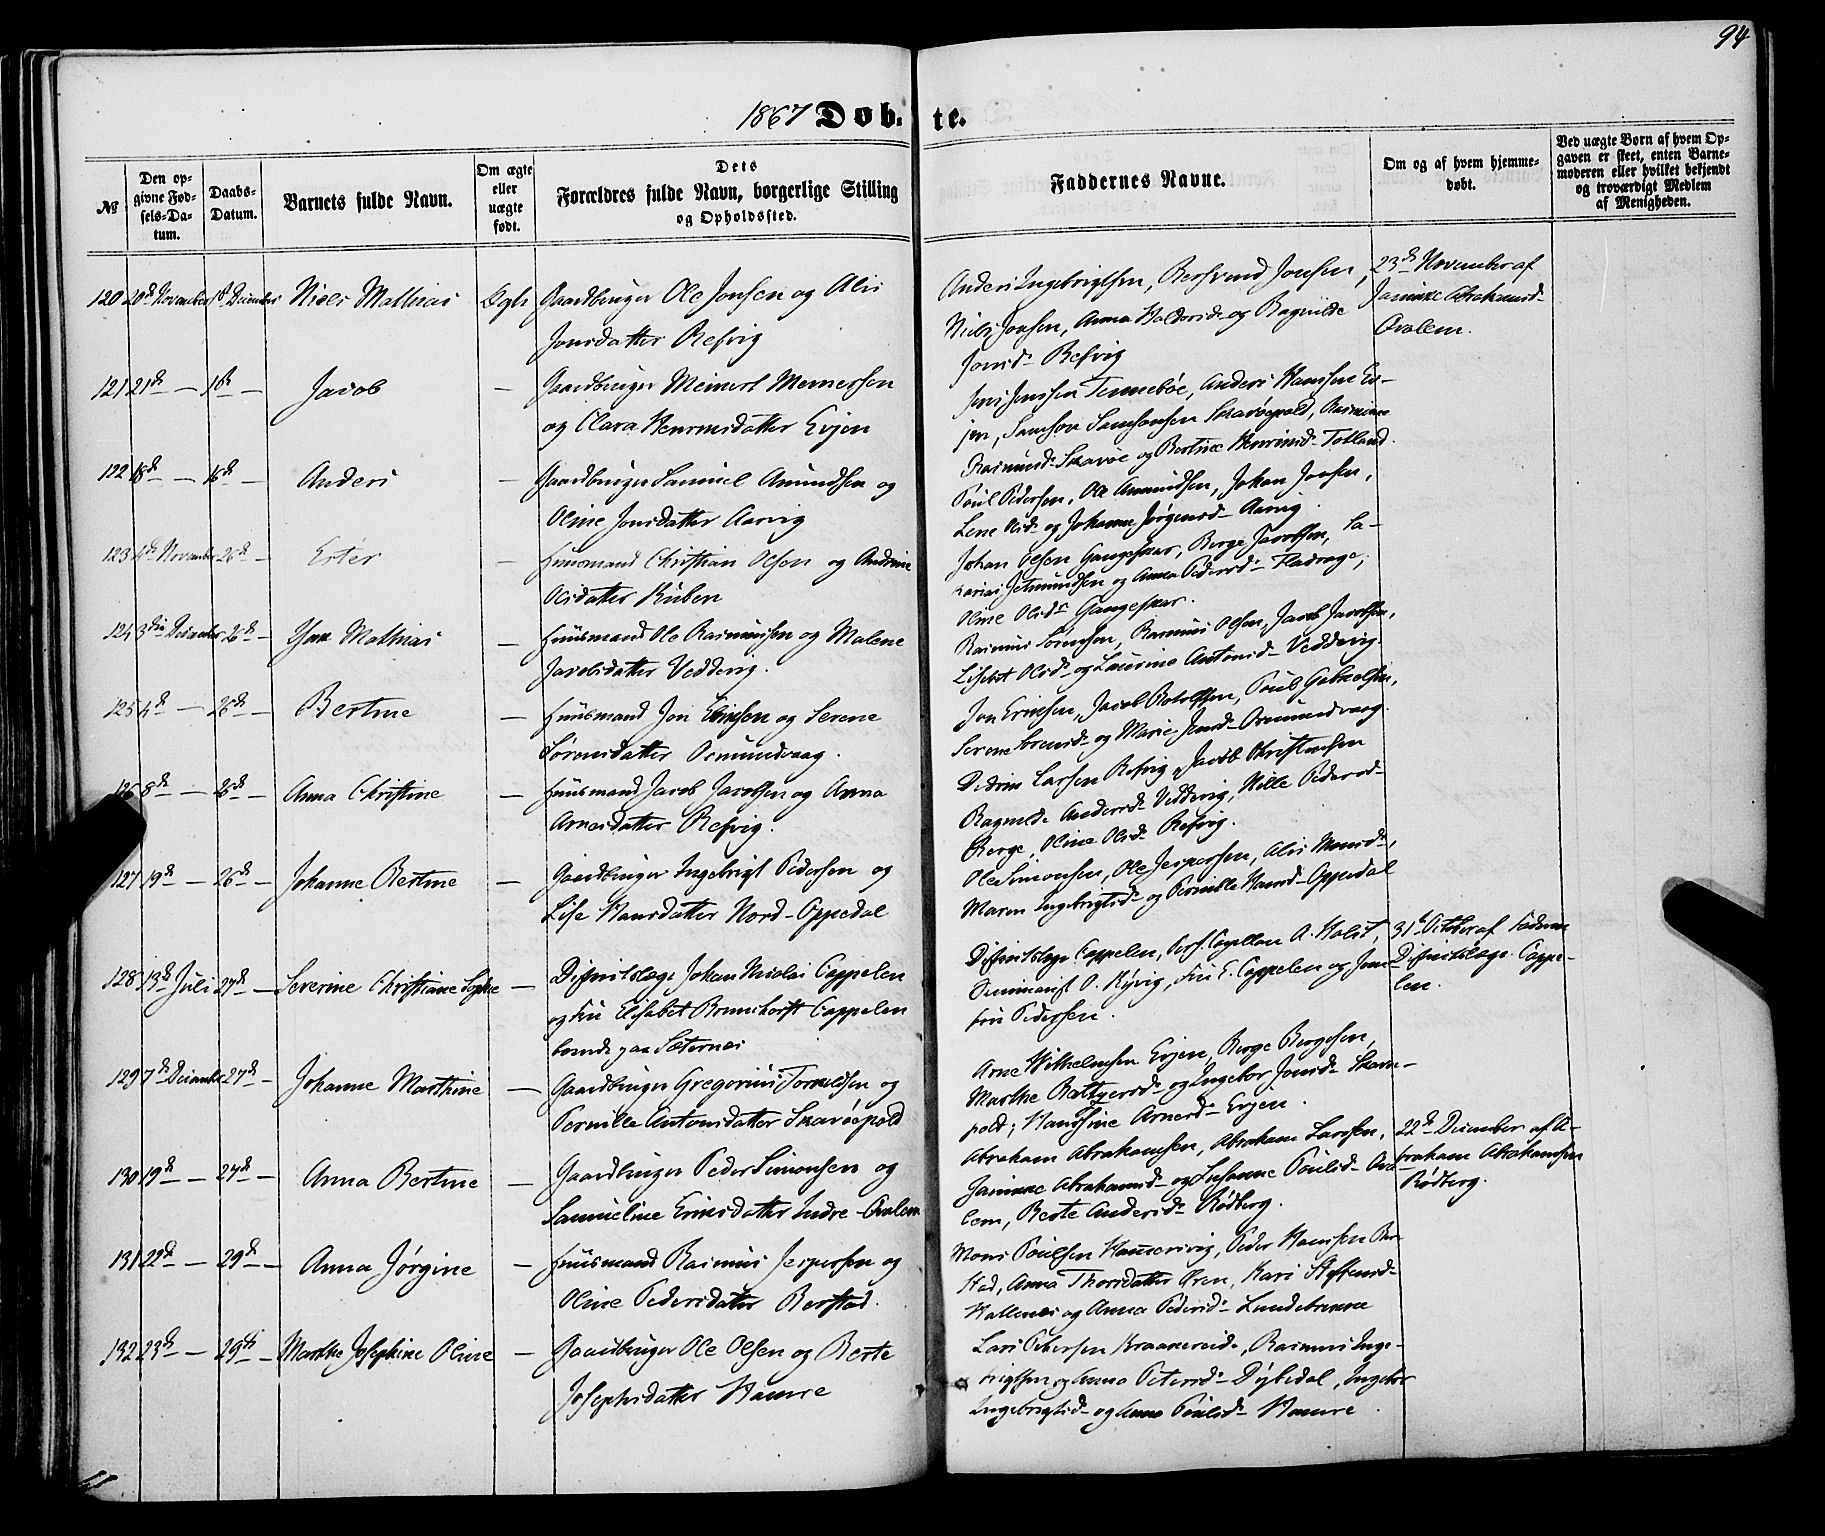 94
1867 Døb-te.
№
Den opgivne Fødsels-Datum.
Daabs-Datum.
Barnets fulde Navn.
Om ægte eller uægte født.
Dets Forældres fulde Navn, borgerlige Stilling og Opholdssted.
Faddernes Navne.
Om og af hvem hjemmedøbt.
Ved uægte Børn af hvem Opgaven er skeet, enten Barnemoderen eller hvilket bekjendt og troværdigt Medlem af Menigheden.
120 20de November 1st December Niels Mathias Ægte Gaardbruger Ole Jonsen og Alis
Jonsdatter Refvig
Anders Ingebrigtsen, Bersvend Jonsen,
Niels Jonsen, Anna Haldorsd- og Ragnilde
Jonsd- Refvig
23de November af
Janikke Abrahamsd-
Qvalem.
121 21de — 1st — Jacob — Gaardbruger Meinert Meinertsen
og Clara Henriksdatter Ervjen
Jens Jenssen Tennebøe, Anders Hanssen Er-
jen, Samson Samsonsen Skavøepold, Rasmine
Rasmusd- Skavøe og Bertine Henriksd- Totland.
122 18de — 16de — Anders — Gaardbruger Samuel Amundsen og
Oline Jonsdatter Aarvig
Poul Pedersen, Ole Amundsen, Johan Jonsen,
Lene Olsd- og Johanne Jørgensd- Aarvig.
123 4de November 26de — Ester — Huusmand Christian Olsen og Andrine
Olsdatter Kuben
Johan Olsen Gangeskar, Berge Jacobsen, Za-
karias Jetmundsen og Anna Pedersd- Fladrage,
Oline Olsd- Gangeskar.
124 3die December 26de — Isak Mathias — Huusmand Ole Rasmussen og Malene
Jacobsdatter Veddevig.
Rasmus Sørensen, Rasmus Olsen, Jacob Jacobsen,
Lisebet Olsd- og Laurine Antonsd- Veddevig.
125 4de — 26de — Bertine — Huusmand Jon Eriksen og Serene
Sørensdatter Osmundvaag.
Jon Eriksen, Jacob Rotolfsen, Poul Gabrielsen,
Serene Sørensd- og Marie Jensd- Osmundvaag.
126 8de — 26de — Anna Christine — Huusmand Jacob Jacobsen og Anna
Arnesdatter Refvig.
Didrik Larsen Refvig, Jacob Christensen
Ragnilde Andersd- Veddevig, Hille Pedersd-
Berge, Oline Olsd- Refvig.
127 19de — 26de — Johanne Bertine — Gaardbruger Ingebrigt Pedersen og
Lise Hansdatter Nord-Oppedal
Ole Simonsen, Ole Jespersen, Alis Monsd-,
Maren Ingebrigtsd- og Pernille Hansd- Oppedal
128 13de Juli 27de — Severine Christiane Sophie — Distriktslæge Johan Nicolai Cappelen
og Fru Elisabet Brunchorst Cappelen
boende paa Sæternæs
Distriktslæge Cappelen, Pers. Capellan A. Holst,
Seminarist O. Myvig, Fru E. Cappelen og Jom-
fru Pedersen.
31te October af Faderen
Distriktslæge Cappe-
len.
129 7de December 27de — Johanne Marthine — Gaardbruger Gregorius Tormodsen og
Pernille Antonsdatter Skavøepold
Arne Wilhelmsen Ervjen, Berge Bergesen,
Marthe Baltzersd- og Ingebor Jonsd- Skavøe-
pold, Hansine Arnesd- Ervjen.
130 19de — 27de — Anna Bertine — Gaardbruger Peder Simonsen og
Samueline Eriksdatter Indre-Qvalem
Abraham Abrahamsen, Abraham Larsen,
Janikke Abrahamsd- og Susanne Poulsd- Qva-
lem, Berte Andersd- Rødberg.
22de December af A-
braham Abrahamsen
Rødberg.
131 22de — 29de — Anna Jørgine — Huusmand Rasmus Jespersen og
Oline Pedersdatter Berstad.
Mons Poulsen Hammersvig, Peder Hanssen Ber-
stad, Anna Thorsdatter Øren, Kari Steffensd-
Hallenæs og Anna Pedersd- Lundebrekke
132 23de — 29de — Marthe Josephine Oline — Gaardbruger Ole Olsen og Berte
Josephsdatter Hamre
Lars Petersen Kraakereide, Rasmus Inge-
brigtsen og Anna Petersd- Dybedal, Ingebor
Ingebrigtsd- og Anna Poulsd- Hamre.